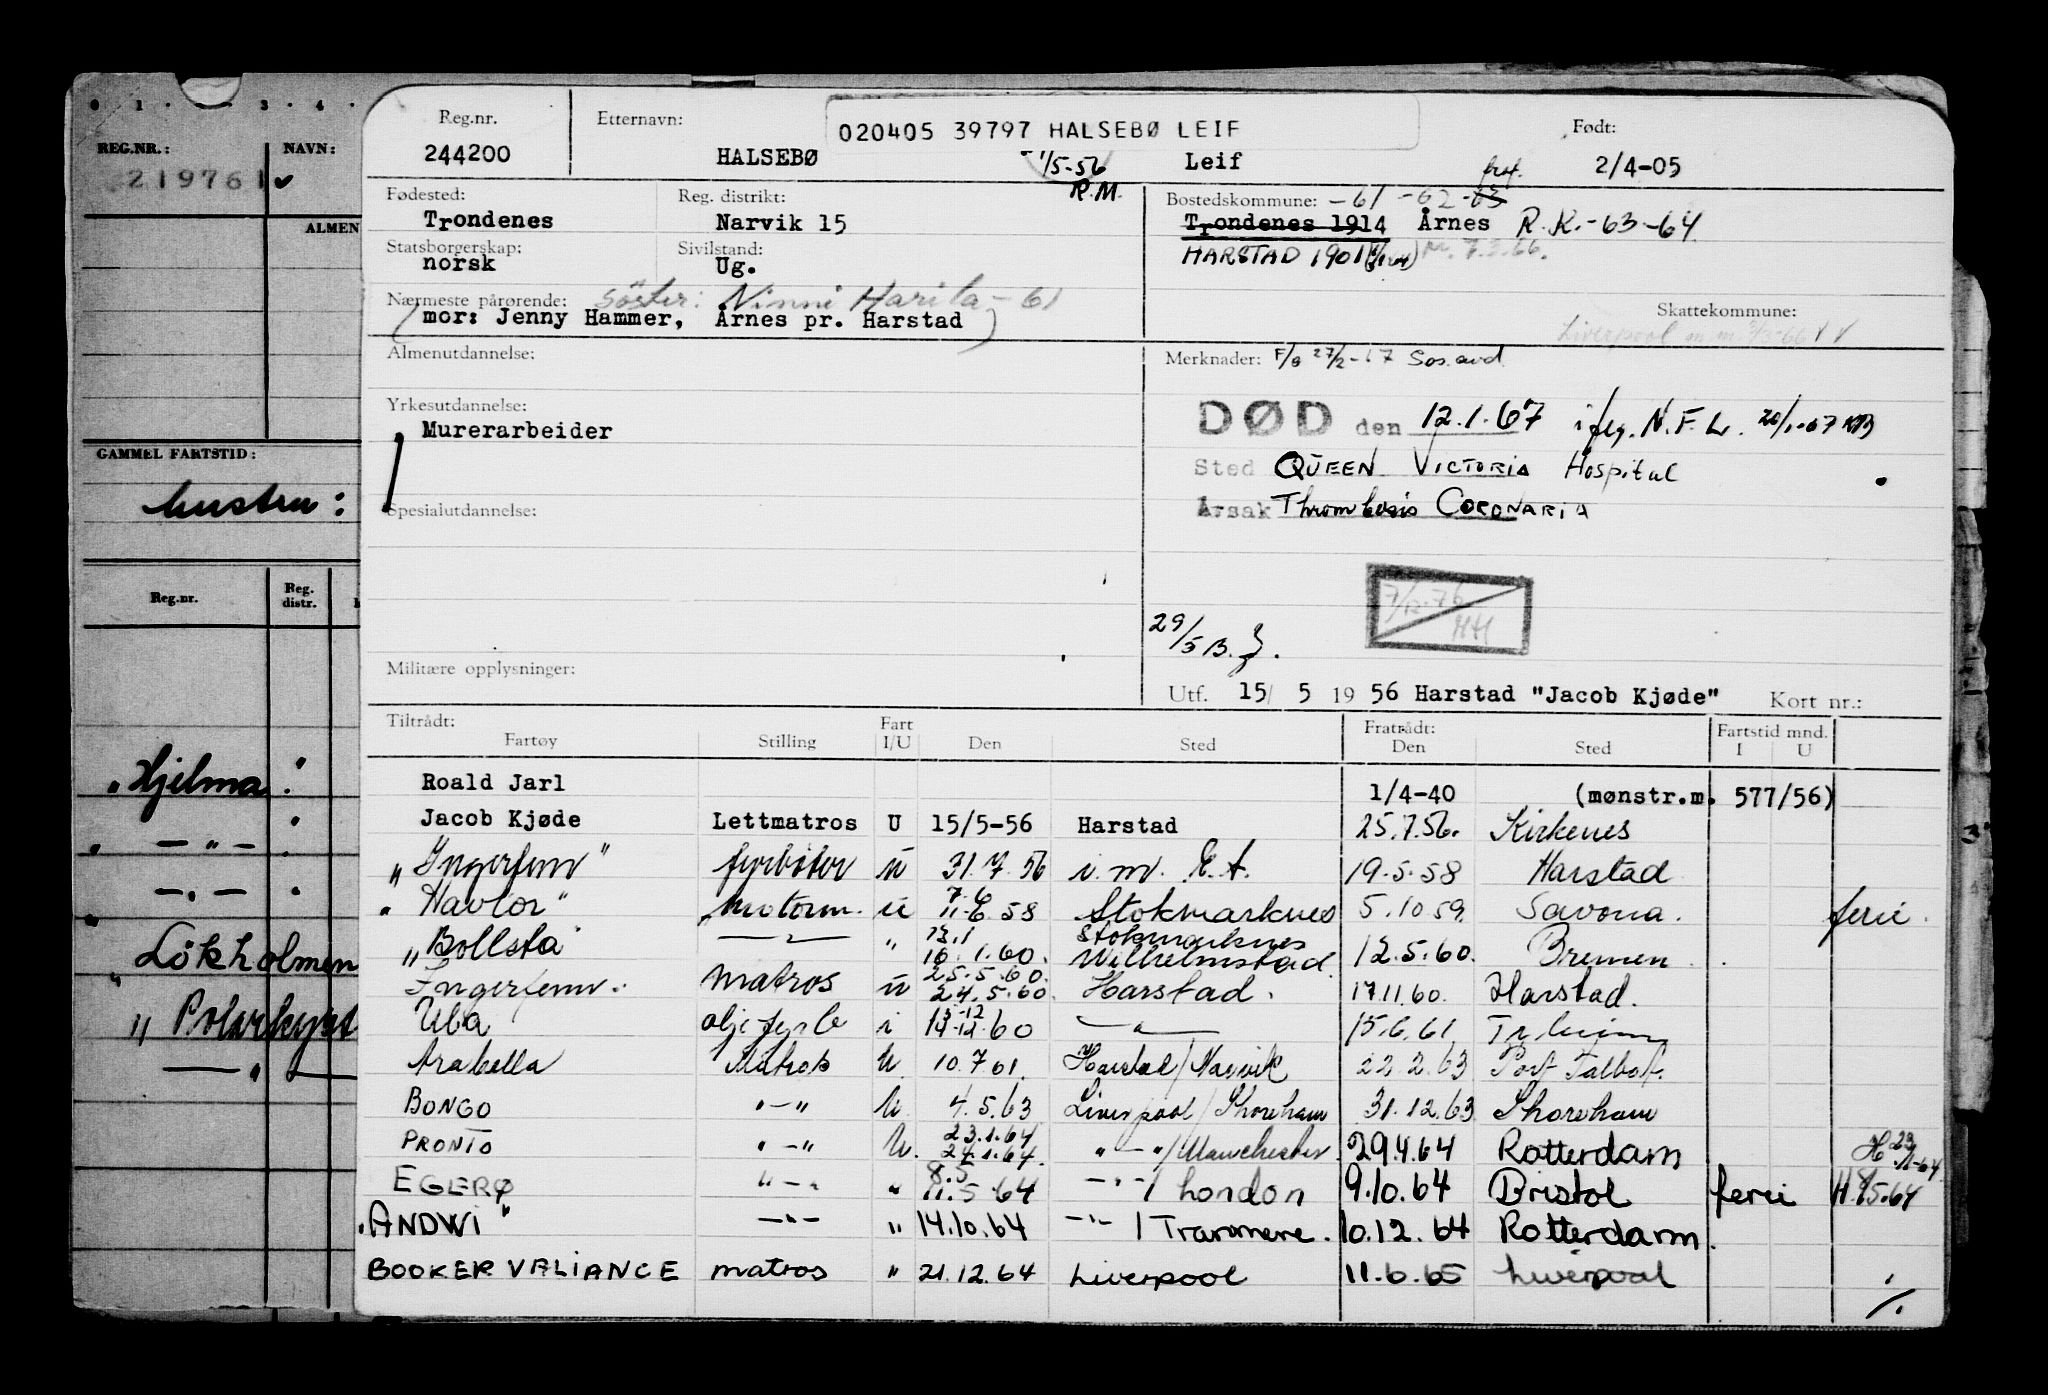 0 1 · 3 · 4 ·
REG.NR.: NAVN:
219761
ALMEN
GAMMEL FARTSTID:
hustru:
Reg.nr. Reg. distr.
"Hjelma"
" — " —
" — " —
Lökholmen
" Polarkyst
— " —
Reg.nr. Etternavn: 020405 39797 HALSEBØ LEIF Født:
244200 HALSEBØ 1/5-56 R.M. Leif 2/4-05
Fødested: Reg. distrikt: Bostedskommune: -61 -62 -63 frf.
Trondenes Narvik 15 Trondenes 1914 Årnes R.K.-63-64
Statsborgerskap: Sivilstand: HARSTAD 1901 7.2.66.
norsk Ug.
Nærmeste pårørende: Söster: Ninni Harila - 61 Skattekommune:
(mor: Jenny Hammer, Årnes pr. Harstad) Liverpool
Almenutdannelse: Merknader: F/g 27/2-67 Sos.avd.
Yrkesutdannelse: DØD den 12.1.67 ifлg. N.F.L. 20/1-67
Murerarbeider Sted QUEEN VICTORIA Hospital
Spesialutdannelse: Årsak Thrombosis CORONARIA
7/12-76
HH
29/5 B.
Militære opplysninger: Utf. 15/ 5 19 56 Harstad "Jacob Kjøde" Kort nr.:
Tiltrådt: Fart Fratrådt: Fartstid mnd.
Fartøy Stilling I/U Den Sted Den Sted I U
Roald Jarl 1/4-40 (mønstr.m. 577/56)
Jacob Kjøde Lettmatros U 15/5-56 Harstad 25.7.56. Kirkenes
"Ingerfem" fyrbøter u 31.7.56 i.m. E.A. 19.5.58 Harstad
"Havlor" motorm. u 7.6 11.6.58 Stokmarknes 5.10.59. Savona. ferie.
"Bollsta" — " — " 13.1 16.1.60. Stokmarknes Wilhelmstad 12.5.60. Bremen
Ingerfem. matros u 25.5.60. 24.5.60. Harstad. 17.11.60. Harstad.
Uba i 14.12.60 — " — 15.6.61 Tr.heim
Arabella Matros U. 10.7.61. Harstad/Narvik 22.2.63 Port Talbot.
BONGO " — " U. 4.5.63 Liverpool/Shoreham 31.12.63 Shoreham
PRONTO " — " U. 23.1.64 24.1.64. " — " /Manchester. 29.4.64 Rotterdam H 23/1-64
EGERØ " — " " 8.5 11.5 64 — " — / London 9.10.64 Bristol ferie H. 8/5.64
"ANDWI" — " — " 14.10.64 — " — / Tranmere. 10.12.64 Rotterdam.
BOOKER VALIANCE matros " 21.12.64 Liverpool 11.6.65 Liverpool
./.